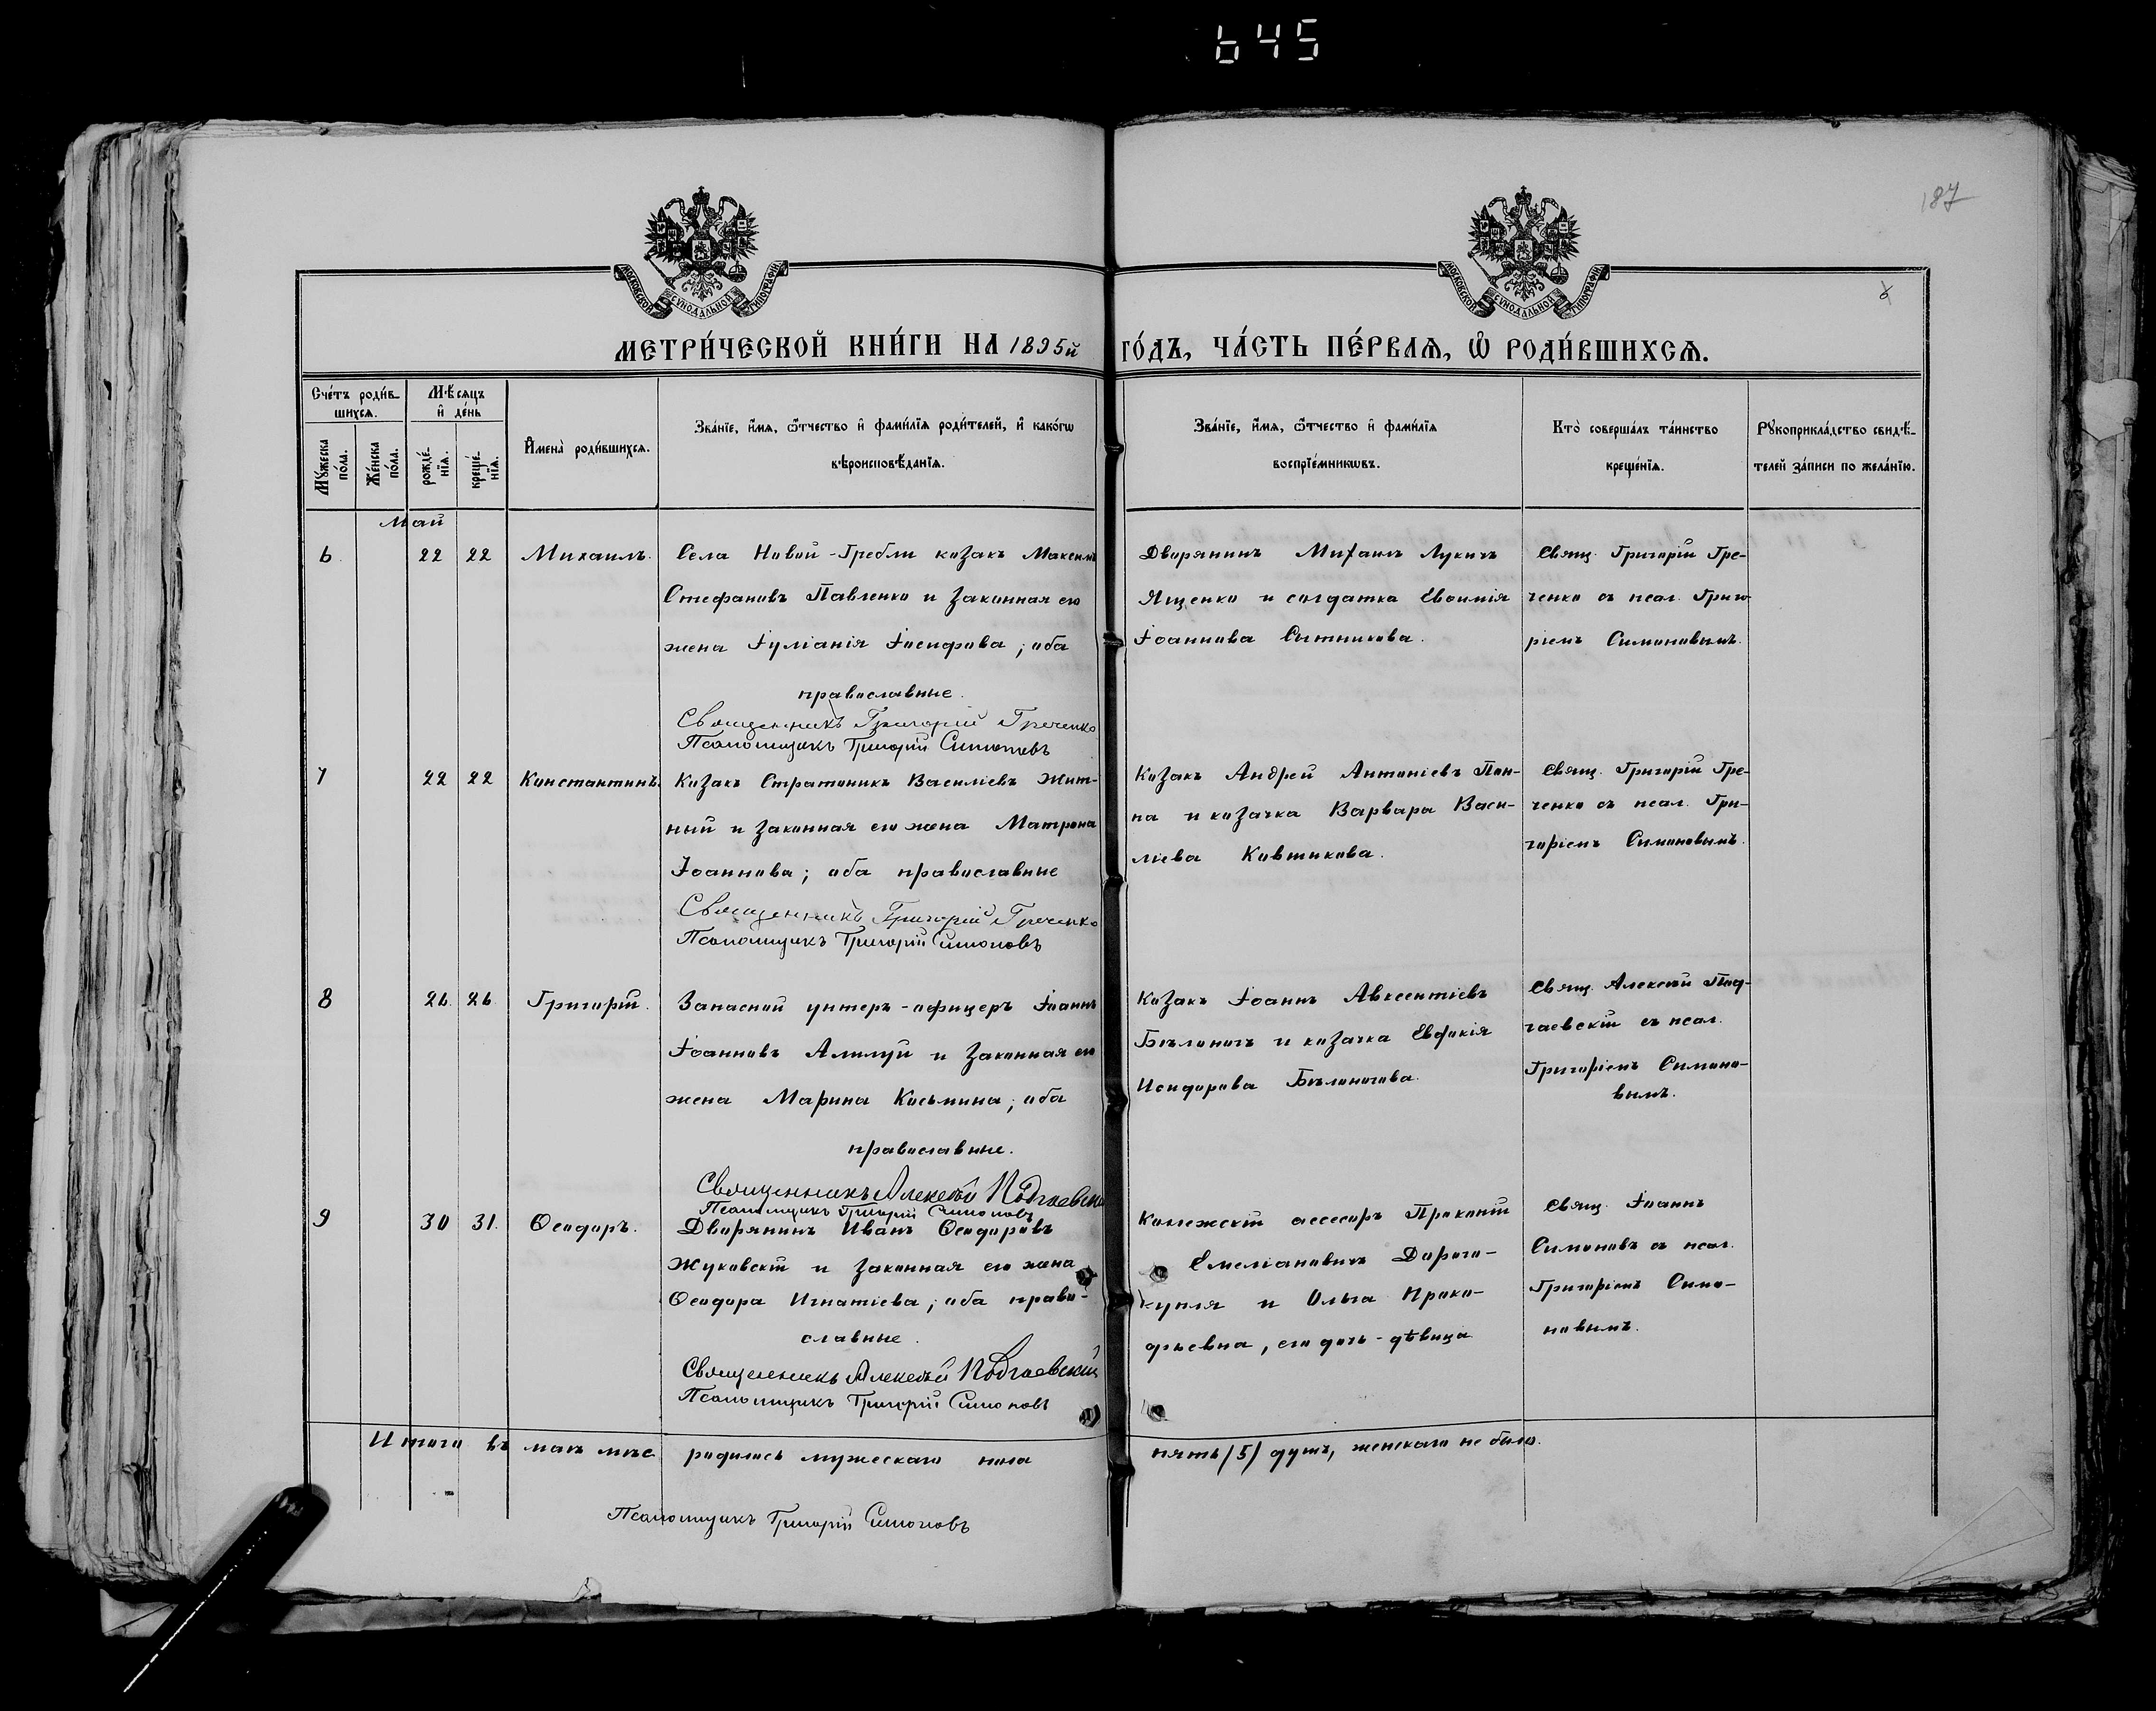 645
187
МОСКОВСКОЙ СѴНОДАЛЬНОЙ ТИПОГРАФІИ
МОСКОВСКОЙ СѴНОДАЛЬНОЙ ТИПОГРАФІИ
МЕТРИ́ЧЕСКОЙ КНИ́ГИ НА 1895й ГО́ДЪ, ЧА́СТЬ ПЕ́РВАѦ, Ѽ РОДИ́ВШИХСѦ.
Сче́тъ роди́в-
шихсѧ.
Мѣ́сѧцъ
и҆ де́нь
Мꙋ́жеска по́ла.
Же́нска по́ла.
рожде́-
нїѧ.
креще́-
нїѧ.
И҆мена̀ роди́вшихсѧ.
Зва́нїе, и҆́мѧ, ѻ҆́тчество и҆ фами́лїѧ роди́телей, и҆ како́гѡ
вѣроисповѣ́данїѧ.
Зва́нїе, и҆́мѧ, ѻ҆́тчество и҆ фами́лїѧ
воспрїе́мникѡвъ.
Кто̀ соверша́лъ та́инство
креще́нїѧ.
Рꙋкоприкла́дство свидѣ́-
телей за́писи по жела́нїю.
Май
6 22 22 Михаилъ.
Села Новой-Гребли козакъ Максимъ
Стефановъ Павленко и законная его
жена Іуліанія Іосифова; оба
православные.
Священникъ Григорій Греченко
Псаломщикъ Григорій Симоновъ
Дворянинъ Михаилъ Лукичъ
Ященко и солдатка Евѳимія
Іоаннова Ситникова.
Свящ. Григорій Гре-
ченко съ псал. Григо-
ріемъ Симоновымъ.
7 22 22 Константинъ.
Козакъ Стратоникъ Василіевъ Жит-
ный и законная его жена Матрона
Іоаннова; оба православные
Священникъ Григорій Греченко
Псаломщикъ Григорій Симоновъ
Козакъ Андрей Антоніевъ Поп-
па и козачка Варвара Васи-
ліева Ковтикова.
Свящ. Григорій Гре-
ченко съ псал. Гри-
горіемъ Симоновымъ.
8 26. 26. Григорій.
Запасной унтеръ-офицеръ Іоаннъ
Іоанновъ Алилуй и законная его
жена Марина Косьмина; оба
православные.
Священникъ Алексѣй Подгаевскій
Псаломщикъ Григорій Симоновъ
Козакъ Іоаннъ Авксентіевъ
Бѣлоногъ и козачка Евдокія
Исидорова Бѣлоногова.
Свящ. Алексѣй Под-
гаевскій съ псал.
Григоріемъ Симоно-
вымъ.
9 30 31. Ѳеодоръ.
Дворянинъ Иванъ Ѳеодоровъ
Жуковскій и законная его жена
Ѳеодора Игнатіева; оба право-
славные.
Священникъ Алексѣй Подгаевскій
Псаломщикъ Григорій Симоновъ
Коллежскій ассесоръ Прокопій
Емеліановичъ Дорого-
купля и Ольга Проко-
фьевна, его дочь-дѣвица
Свящ. Іоаннъ
Симоновъ съ псал.
Григоріемъ Симо-
новымъ.
Итого въ маѣ мѣс. родилось мужескаго пола пять /5/ душъ, женскаго не было.
Псаломщикъ Григорій Симоновъ